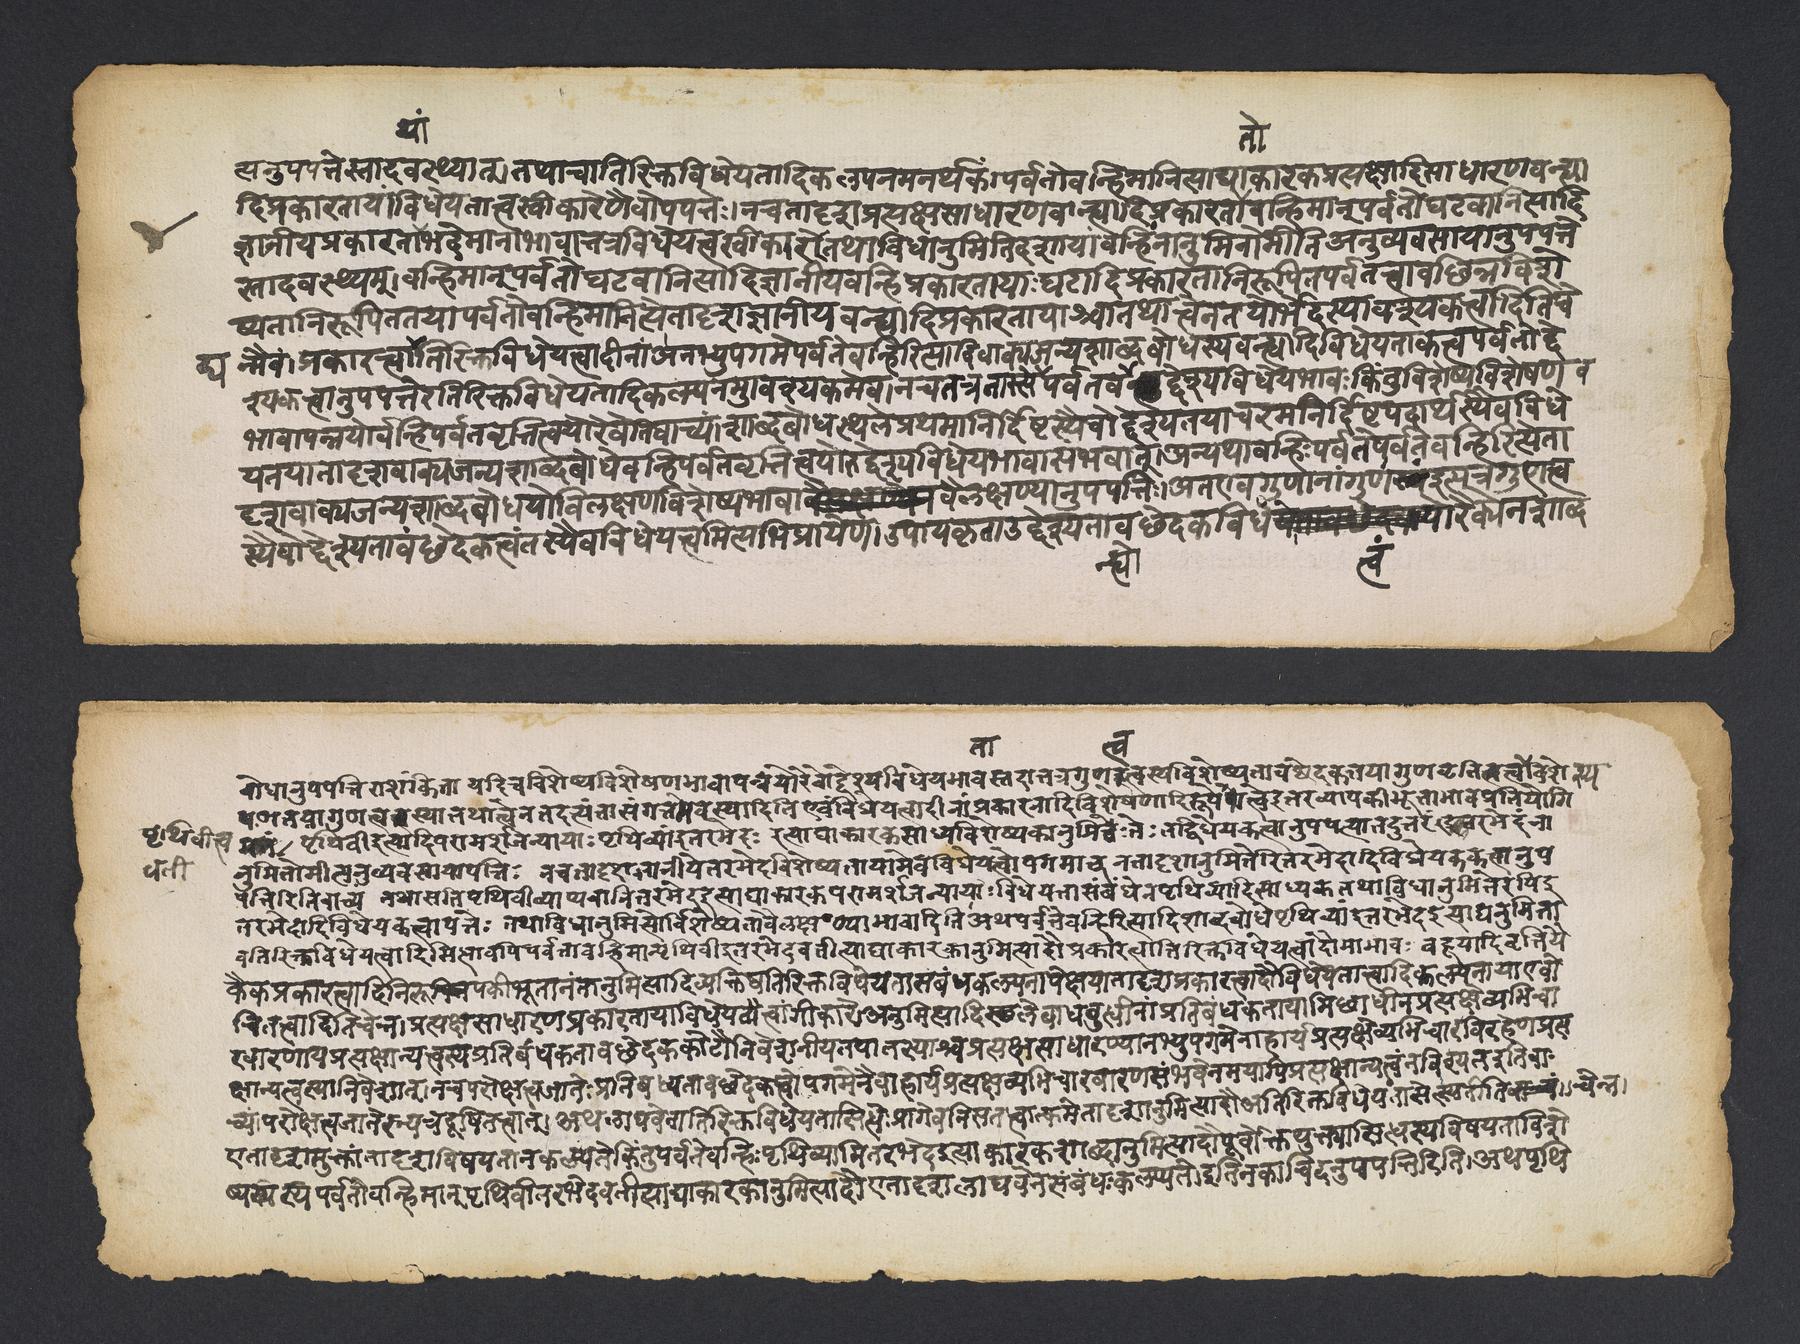 थां
तो
त्यनुपपत्तेस्तादवस्थ्यात्। तथाचातिरिक्तविधेयतादिकल्पनमनर्थकं। पर्वतोवन्हिमानित्याद्याकारकप्रत्यक्षादिसाधारणवन्ह्या
दिप्रकारतायांविधेयतात्वस्वीकारेणैवोपपत्तेः। नचतादृशप्रत्यक्षसाधारणवन्ह्यादिप्रकारतावन्हिमान्पर्वतोघटवानित्यादि
ज्ञानीयप्रकारता तत्रविधेयत्वस्वीकारे तथाविधानुमितिदशायांवन्हिंनानुमिनोमीति अनुव्यवसायानुपपत्ते
स्तादवस्थ्यम्। वन्हिमान्पर्वतोघटवानित्यादिज्ञानीयवन्हिप्रकारतायाःघटादिप्रकारतानिरूपितपर्वतत्वावछिन्नविशे
ष्यतानिरूपिततयापर्वतोवन्हिमानित्येतादृशज्ञानीयवन्ह्यादिप्रकारतायाश्चातथात्वेनतयोर्भेदस्यावश्यकत्वादितिचे
न्मैवं। प्रकारत्वातिरिक्तविधेयत्वादीनांअनभ्युपगमेपर्वतेवन्हिरित्यादिवाक्यजन्यशाब्दबोधस्यवन्ह्यादिविधेयताकत्वपर्वतोद्दे
द्य
श्यकत्वानुपपत्तेरतिरिक्तविधेयतादिकल्पनमावश्यकमेव। नचतत्र द्देश्यविधेयभावःकिंतुविशेष्यविशेषण
व
भावापन्नयोर्वन्हिपर्वतवृत्तित्वयोरेवेतिवाच्यं। शाब्दबोधस्थलेप्रथमनिर्दिष्टस्यैवोद्देश्यतयाचरमनिर्दिष्टपदार्थस्यैवविधे
यतयातादृशवाक्यजन्यशाब्दबोधेवन्हिपर्वतवृत्तित्वयोरुद्देश्यविधेयभावासंभवात्। अन्यथावन्हिःपर्वतेपर्वतेवन्हिरित्येता
दृशवाक्यजन्यशाब्दबोधयोर्विलक्षणविशेष्यभावा वैलक्षण्यानुपपत्तिः। अतएवगुणानांगुण इत्यत्रगुणत्व
स्यैवोद्देश्यतावछेदकत्वंतस्यैवविधेयत्वमित्यभिप्रायेण। उपायकृताउद्देश्यतावछेदकविधे योरैक्येनशाब्द
न्ह्यो
त्वं
ता
त्व
बोधानुपपत्तिराशंकिता यदिचविशेष्यविशेषणभावापन्नयोरेवोद्देश्यविधेयभावस्तदातत्रगुण त्वस्यविशेष्यतावछेदकतयागुणवृत्तित्वस्यविशे
ष्य
षणतयागुणत्वस्यातथात्वेनतदत्यंतासंगतमेवस्यादिति एवंविधेयत्वादीनांप्रकारतादिविशेषणादिरूपत्वेइतरव्यापकीभूताभावप्रतियोगि
पृथिवीत्व
वती
पृथिवीइत्यादिपरामर्शजन्यायाःपृथिव्यामितरभेदः इत्याद्याकारकसाध्यविशेष्यकानुमितेः तद्विधेयकत्वानुपपत्त्यातदुत्तरंइतरभेदंना
नुमिनोमीत्यनुव्यवसायापत्तिः नचतादृशज्ञानीयेतरभेदविशेष्यतायामेवविधेयत्वोपगमान्न तादृशानुमितेरितरभेदादिविधेयकत्वानुप
पत्तिरितिवाच्यं तथासतिपृथिवीव्याप्यवानितरभेदइत्याद्याकारकपरामर्शजन्यायाःविधेयतासंबंधेनपृथिव्यादिसाध्यकतथाविधानुमितेरपिइ
तरभेदादिविधेयकत्वापत्तेः तथाविधानुमित्योर्विशेष्यतावैलक्षण्याभावादिति अथपर्वतेवन्हिरित्यादिशाब्दबोधेपृथिव्यांइतरभेदइत्याद्यनुमितौ
चातिरिक्तविधेयत्वादिसिद्धावपिपर्वतोवन्हिमान्पृथिवीइतरभेदवतीत्याद्याकारकानुमित्यादौप्रकारत्वातिरिक्तविधेयत्वादौमानाभावः
कैकप्रकारत्वादिनिरूपकीभूतानंतानुमित्यादिव्यक्तिष्वतिरिक्तविधेयतासंबंधकल्पनापेक्षयातादृशप्रकारत्वादौविधेयतात्वादिकल्पनायाएवो
चितत्वादितिचेन्न। प्रत्यक्षसाधारणप्रकारतायाविधेयतात्वांगीकारे अनुमित्यादिस्थलेबाधबुद्धीनांप्रतिबंधकतायामिच्छाधीनप्रत्यक्षेव्यभिचा
रवारणायप्रत्यक्षान्यत्वस्यप्रतिबंधकतावछेदककोटौनिवेशनीयतया प्रत्यक्षसाधारण्यानभ्युपगमेनाहार्यप्रत्यक्षेव्यभिचारविरहेणप्रत्य
क्षान्यत्वस्यानिवेशात्। नचपरोक्षत्वजातेःप्रतिबध्यतावछेदकत्वोपगमेनैवाहार्यप्रत्यक्षव्यभिचारवारणसंभवेनमयापिप्रत्यक्षान्यत्वंननिवेश्यतइतिवा
च्यं। परोक्षत्वजातेरन्यत्रदूषितत्वात्। अथलाघवेनातिरिक्तविधेयतासिद्धेःप्रागेव एतादृशानुमित्यादौअतिरिक्तविधेयतासेत्स्यतीति चेन्न।
एतादृशयुक्त्यातादृशविषयतानकल्प्यतेकिंतुपर्वतेवन्हिःपृथिव्यामितरभेदइत्याकारकशाब्दानुमित्यादौपूर्वोक्तयुक्त्यासिद्धस्यविषयताविशे
ष्यस्यपर्वतोवन्हिमान्पृथिवीतरभेदवतीत्याद्याकारकानुमित्यादौएतादृशलाघवेनसंबंधःकल्प्यते। इतिनकाचिदनुपपत्तिरिति। अथपृथि